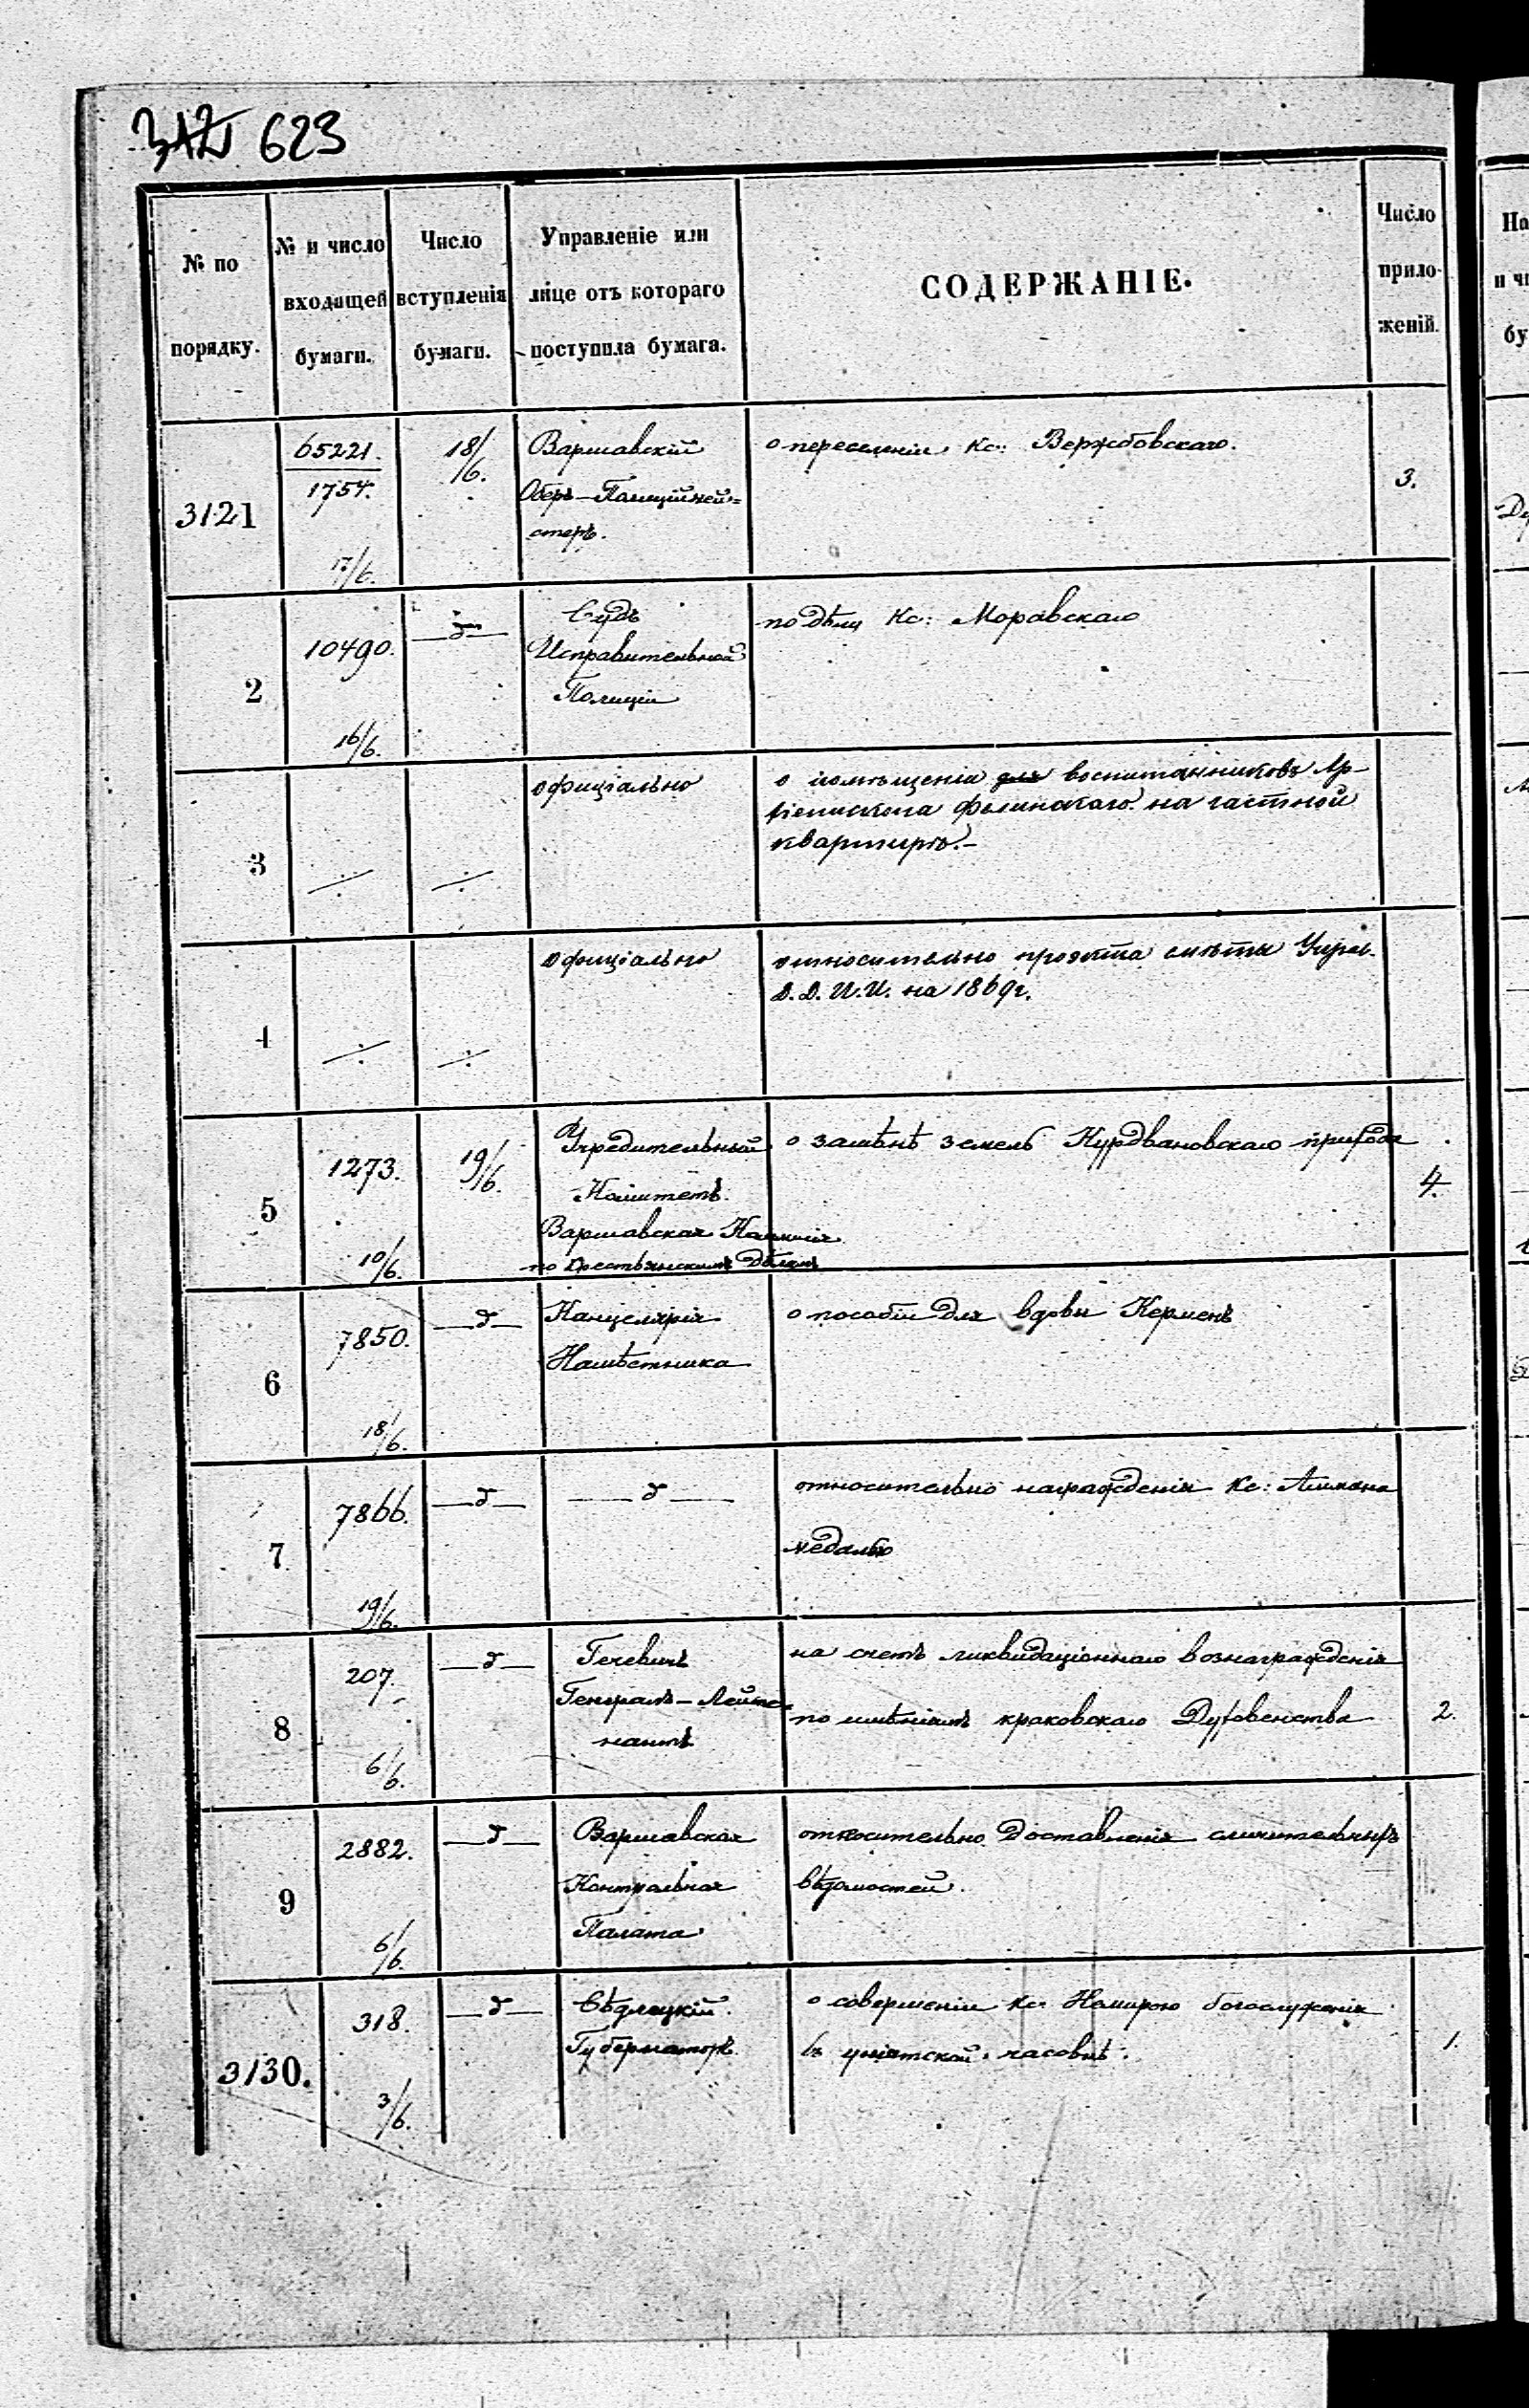 623
№ по порядку.
№ и число входящей бумаги.
Число вступленія бумаги.
Управленіе или лице отъ котораго поступила бумага.
СОДЕРЖАНІЕ.
Число приложеній.
3121
65221.
1754.
17/6.
18/6.
Варшавскій
Оберъ-Полиціймей=
стеръ.
о переселеніи Кс: Вержбовскаго.
3.
2
10490.
16/6.
—д—
Судъ
Исправительной
Полиціи
по дѣлу Кс: Моравскаго
3
официально
о помѣщеніи для воспитанниковъ Ар-
хіепископа Фелинскаго на частной
квартирѣ.-
4
официально
относительно проэкта смѣты Управ.
Д. Д. И. И. на 1869г.
5
1273.
10/6.
19/6.
Учредительный
Комитетъ.
Варшавская Комисія
по Крестьянскимъ Дѣламъ
о замѣнѣ земель Курдвановскаго прихода
4.
6
7850.
18/6.
—д—
Канцелярія
Намѣстника
о пособіи для вдовы Керменъ
7
7866.
19/6.
—д—
—д—
относительно награжденія Кс:
медалью
8
207.
6/6.
—д—
Гечевичъ
Генералъ-Лейте-
нантъ
на счетъ ликвидаціоннаго вознагражденія
по имѣніямъ краковскаго Духовенства
2.
9
2882.
6/6.
—д—
Варшавская
Контрольная
Палата
относительно доставленія сличительныхъ
вѣдомостей.
3130.
318.
3/6.
—д—
Сѣдлецкій
Губернаторъ.
о совершеніи Кс. богослуженія
въ уніятской часовнѣ.
1.